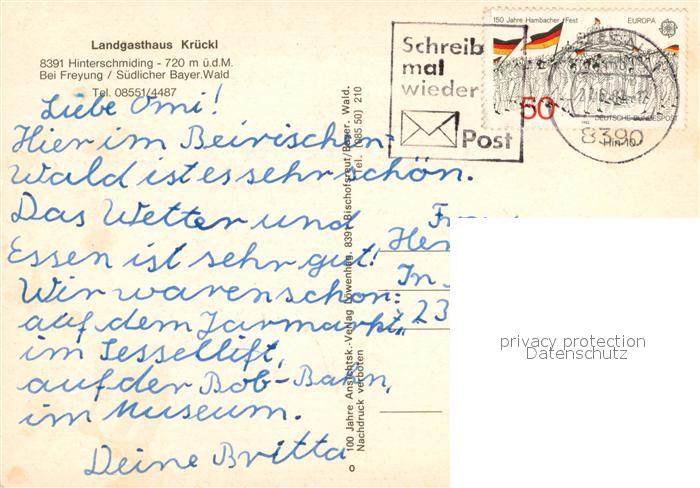 Landgasthaus Krückl
8391 Hinterschmiding - 720 m ü.d.M.
Bei Freyung / Südlicher Bayer.Wald
Tel. 08551/4487
Liebe Omi!
Hier im Beirischen-
Wald ist es sehr schön.
Das Wetter und
Essen ist sehr gut!
Wir waren schon:
auf dem Jarmarkt,
im Sessellift,
auf der Bob-Bahn,
im Museum.
Deine Britta
100 Jahre Ansichtsk.-Verlag Löwenhag. 8391 Bischofsreut/Bayer. Wald.
Nachdruck verboten Tel. (085 50) 210
Schreib
mal
wieder
Post
150 Jahre Hambacher Fest
EUROPA
50
DEUTSCHE BUNDESPOST
8390
Her
In
23
privacy protection
Datenschutz